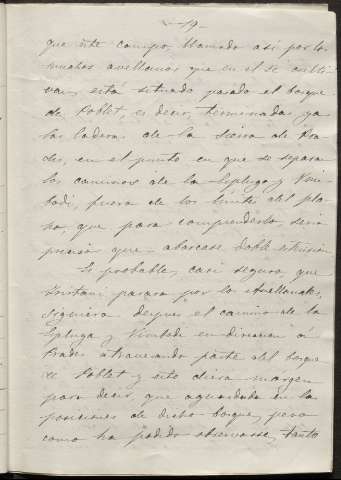 -19-
que este campo, llamado así por los
muchos avellanos que en él se culti-
van, está situado pasado el bosque
de Poblet, es decir, terminadas ya
las laderas de la sierra de Pra-
des, en el punto en que se separan
los caminos de la Espluga y Vim-
bodí, fuera de los límites del pla-
no, que para comprenderlo, sería
preciso que abarcase doble extensión
Es probable, casi seguro, que
Tristani pasara por los Avellanales,
siguiera despues el camino de la
Espluga y Vimbodí en direccion á
Prades atravesando parte del bosque
de Poblet y esto diera margen
para decir, que aguardada en las
posiciones de dicho bosque, pero
como ha podido observarse, tanto